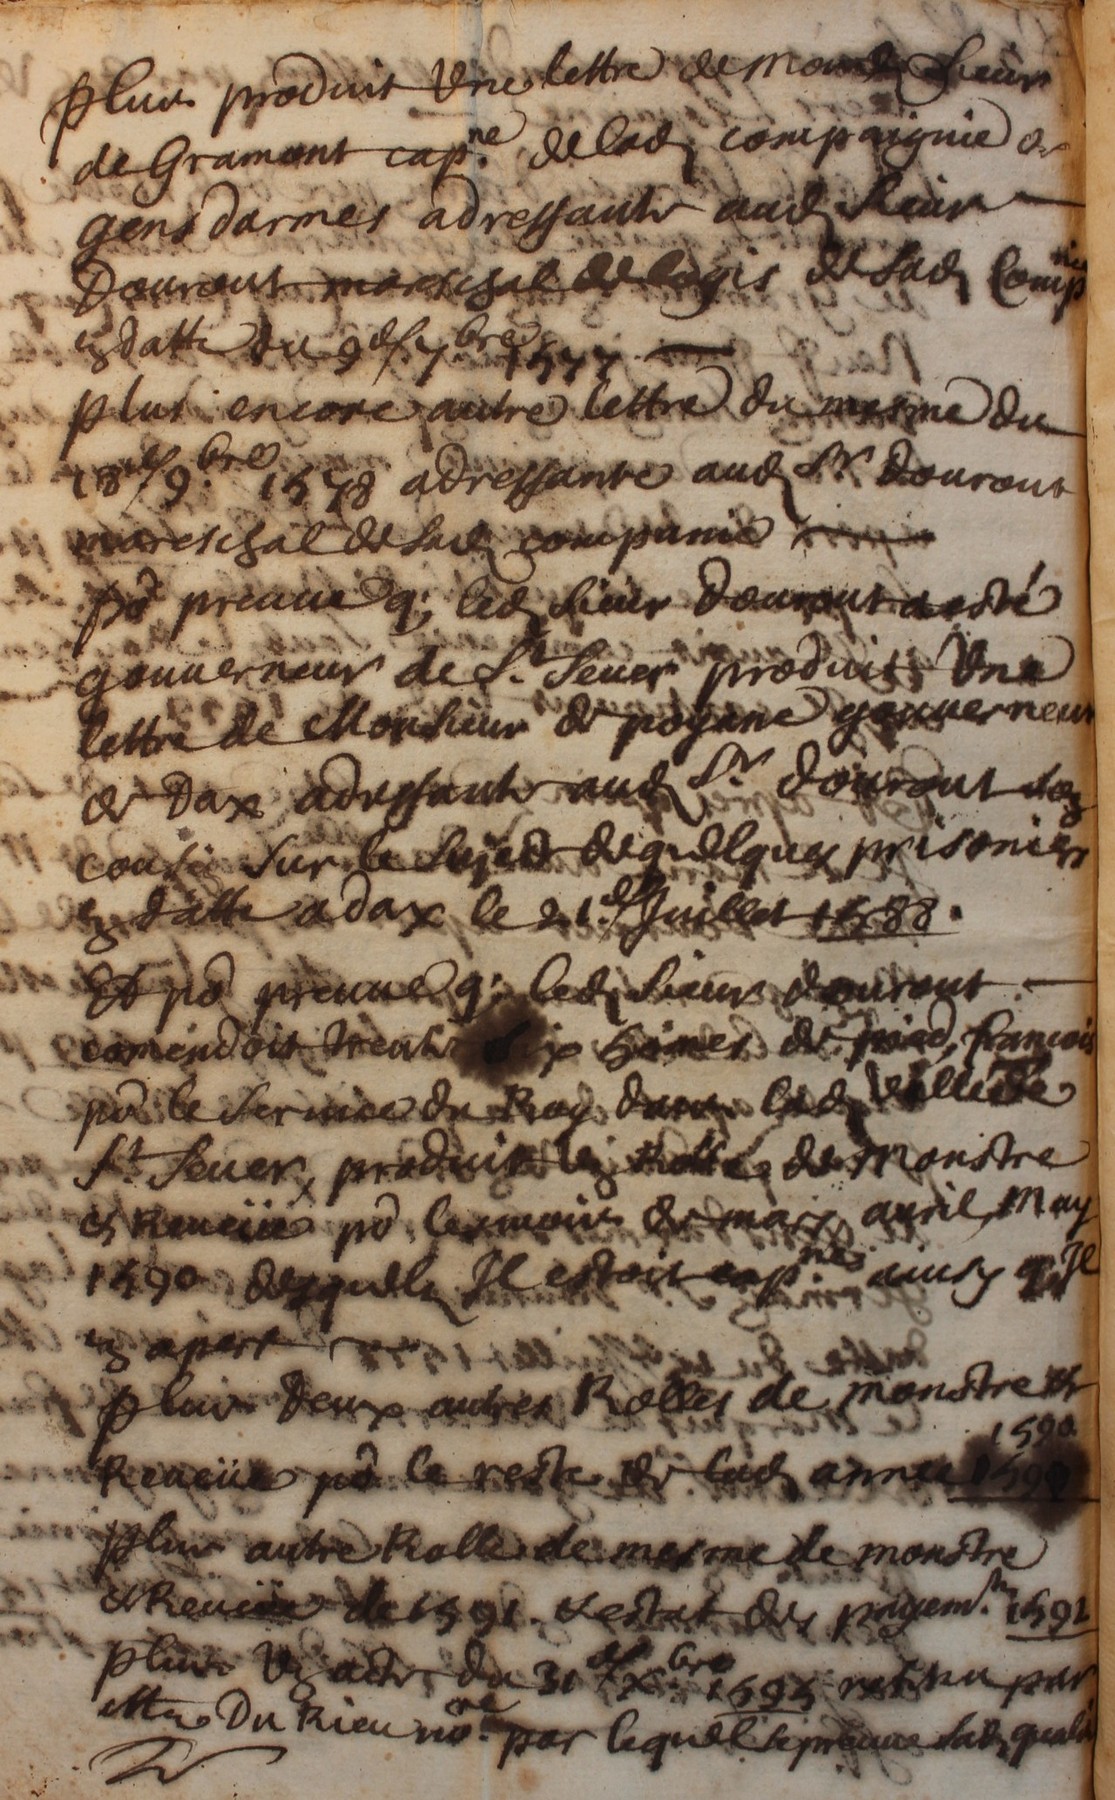 Plus produit Une lettre de mond Sieur
de Gramont cap.ne de lad compaignie de
gensdarmes adressante aud Sieur
Dourout mareschal de logis de lad Compnie
en datte du 9e 7bre 1577
plus encore autre lettre du mesme du
18e 9.bre 1578 adressante aud Sr Dourout
mareschal de lad companie
po preuve q; led Sieur Dourout a esté
gouverneur de St Sever produit Une
lettre de Monsieur de poyane gouverneur
de Dax adressante aud Sr dourout son
cousin sur le sujedt de quelques prisoniers
en datte a dax le 21.e Juillet 1588.
Et po preuve q; led Sieur dourout
comendoit trente six homes de pied, francois
po le service du Roy dans lad ville de
St Sever, produit le Rolle de Monstre
et Reveüe po les mois de mars avril, May
1590 desquels Il estoit capne ainsy q Il
en apert
plus deux autres Rolles de monstre et
1590
Reveüe po le reste de lad annee 1590
plus autre Rolle de mesme de monstre
et Reveüe de 1591. & estat des payem.ts 1592
plus Un acte du 31e Xbre 1595 retenu par
Me Du Rieu nore par lequel se preuve lad qualité